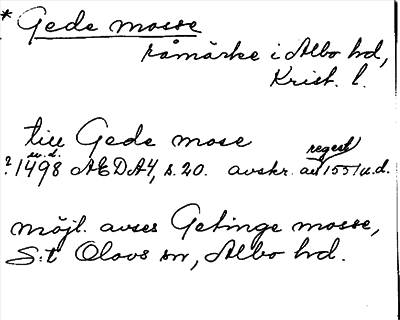 * Gede mosse
råmärke i Albo hd,
Krist. l.
till Gede mose
u.d. regest
? 1498 AEDA4, s. 20. avskr. av 1551 u.d.
möjl. avses Getinge mosse,
S:t Olovs sn, Albo hd.